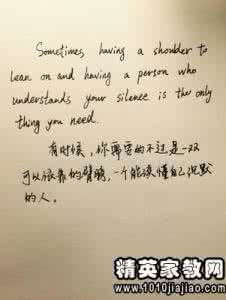 Sometimes, having a shoulder to
lean on and having a person who
understands your silence is the only
thing you need.
有时候，你需要的不过是一双
可以依靠的臂膀，一个能读懂自己沉默
的人。
精英家教网
www.1010jiajiao.com